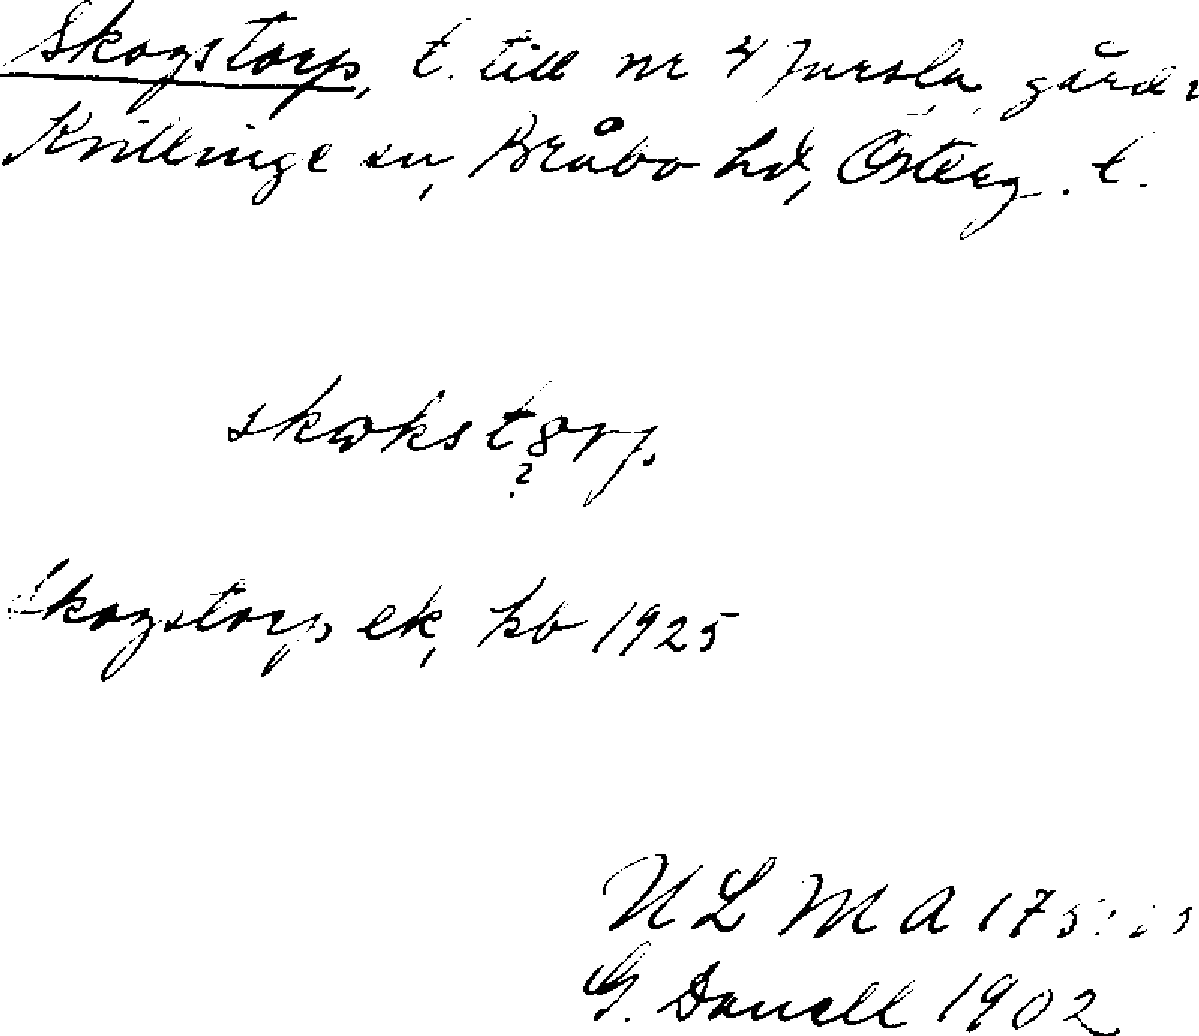 Skogstorp, t. till nr 4 Jursla, gård i
Kvillinge sn, Bråbo hd, Österg. l.
skɷkstȣrp
?
Skogstorp ek, hb 1925
ULMA 175:
G. Danell 1902